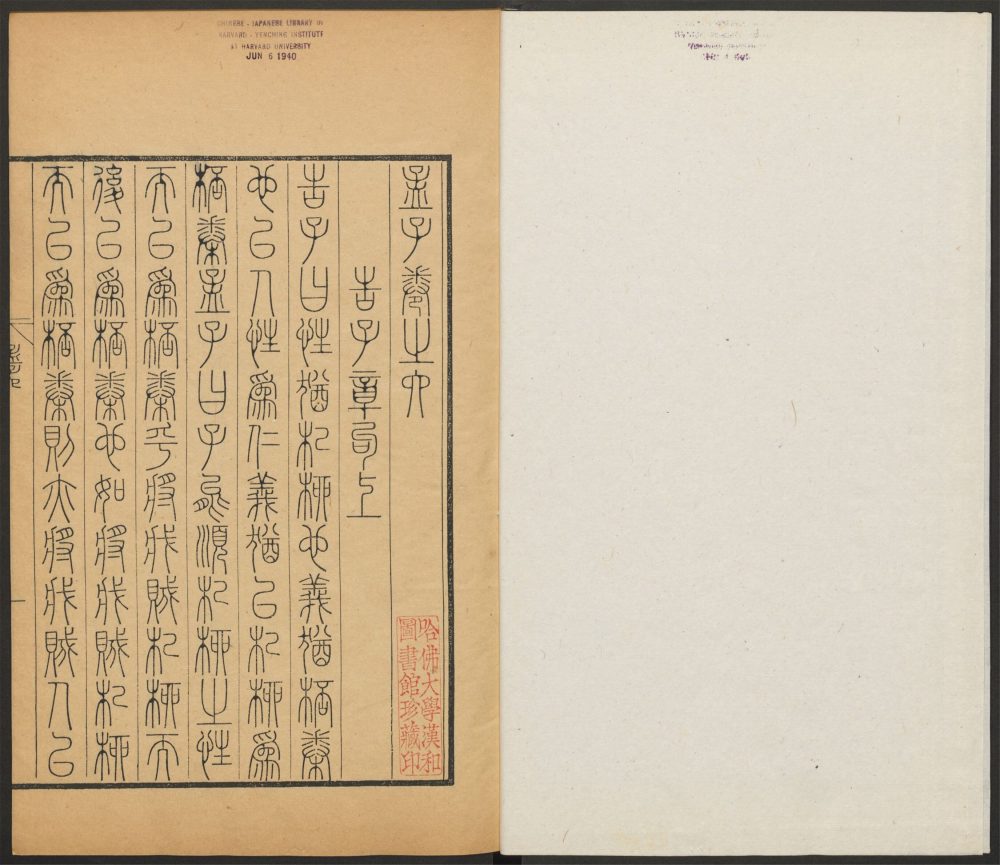 CHINESE - JAPANESE LIBRARY OF
HARVARD - YENCHING INSTITUTE
AT HARVARD UNIVERSITY
JUN 6 1940
孟子卷之六
告子章句上
告子曰性猶杞柳也義猶桮棬
也以人性爲仁義猶以杞柳爲
桮棬孟子曰子能順杞柳之性
而以爲桮棬乎將戕賊杞柳而
後以爲桮棬也如將戕賊杞柳
而以爲桮棬則亦將戕賊人以
哈佛大學漢和
圖書館珍藏印